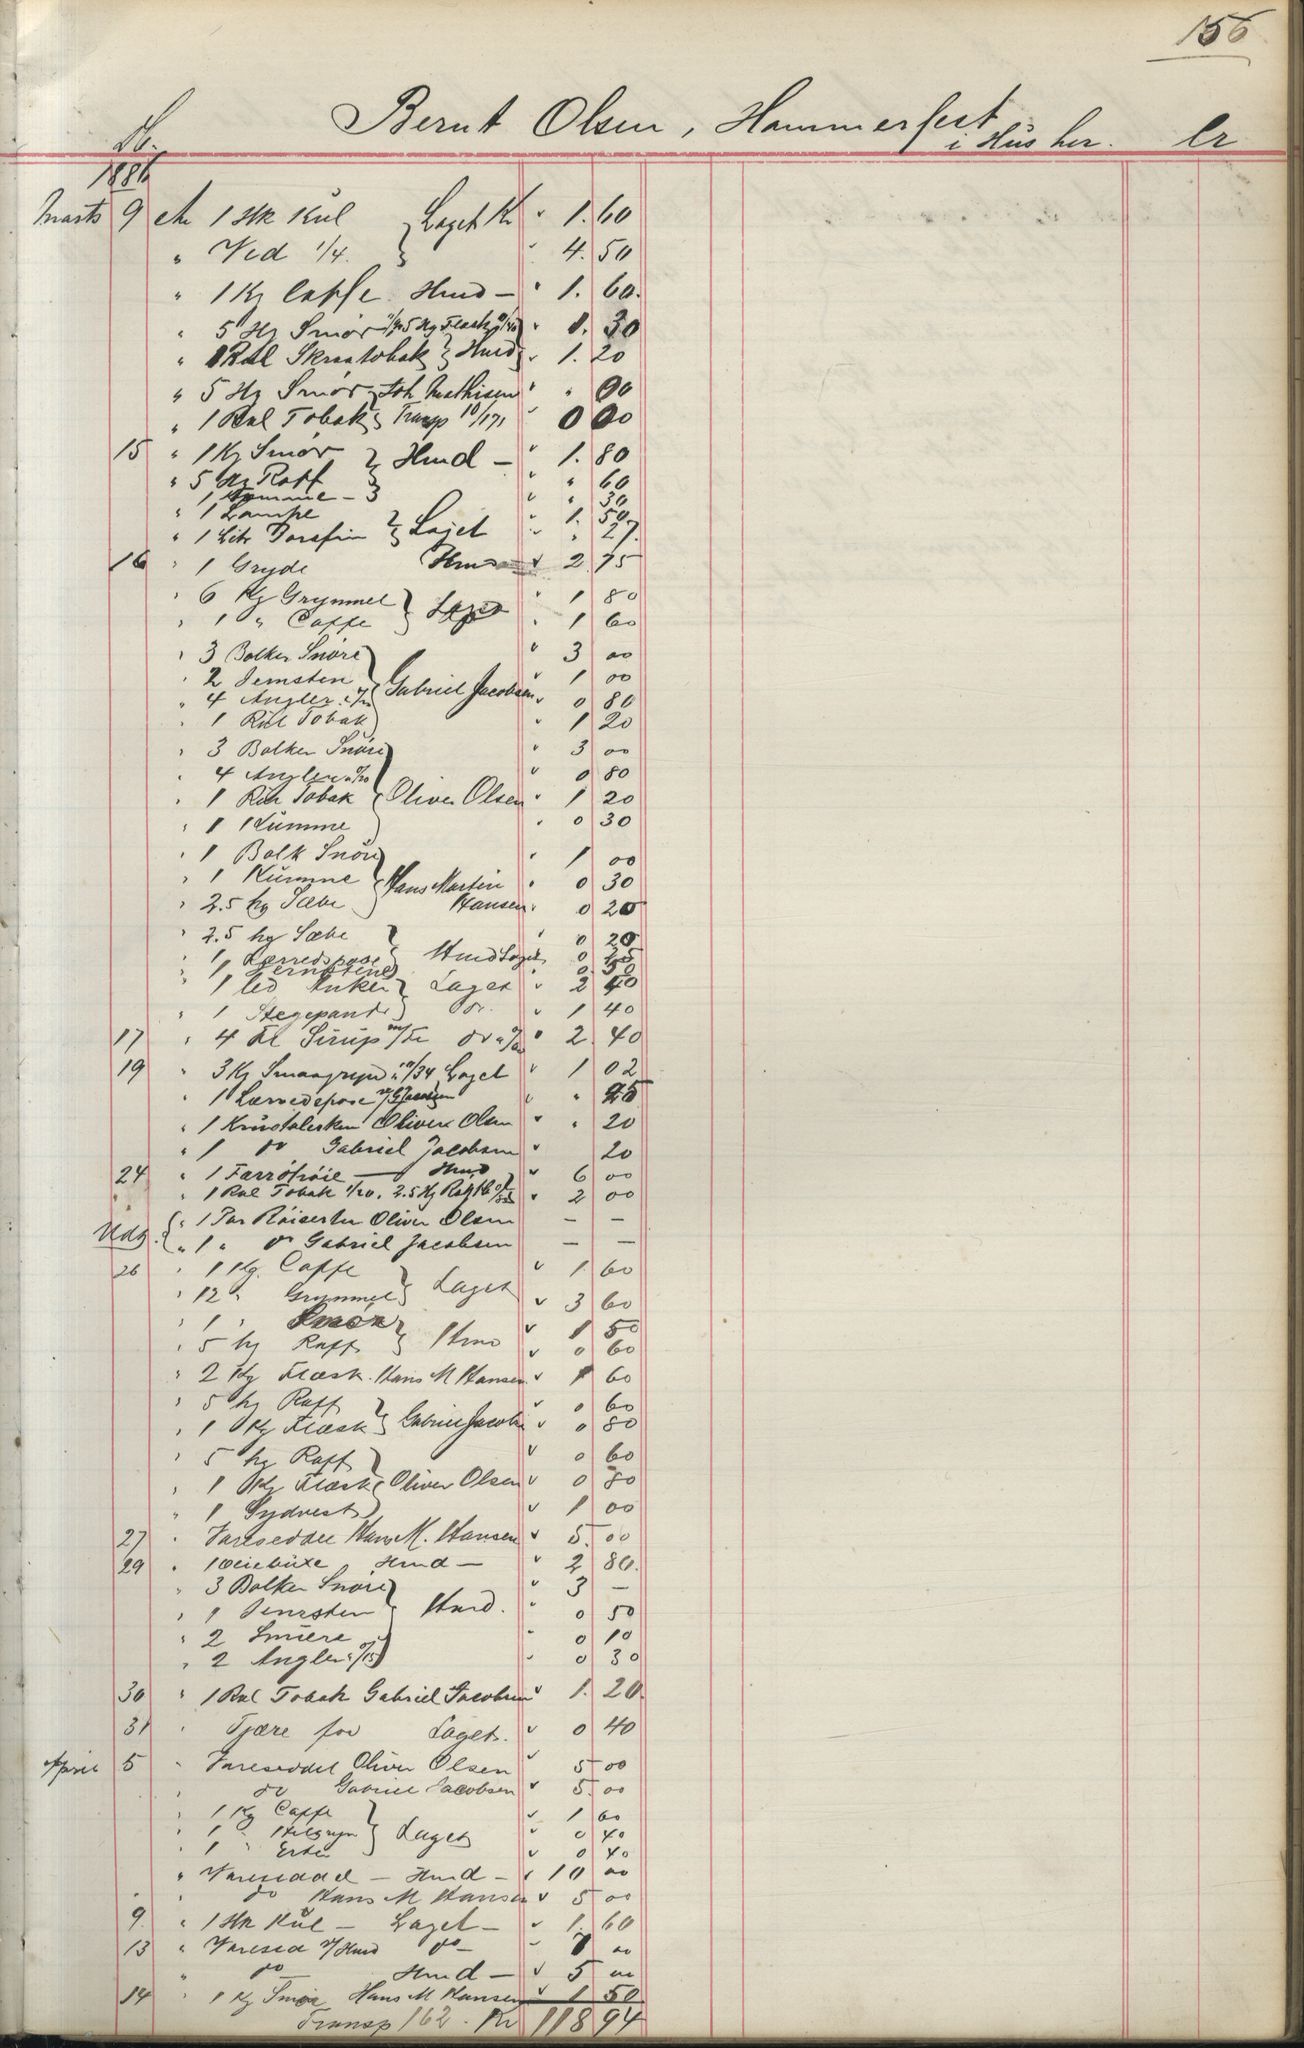 156
Bernt Olsen, Hammerfest
i Hus her.
Db. Cr
1886
Marts 9 An 1 Hk Kul } Laget Kr " 1.60
" Ved 1/4. } " 4.50
" 1 Kg Caffe Hmd — " 1.60.
" 5 Hg Smør 5 Hg Flesk " 1.30
" 1 Rul Skraatobak } Hmd " 1.20
" 5 Hg Smør } Joh Mathisen " " 00
" 1 Rul Tobak } Transp 10/171 " 0 00
15 " 1 Kg Smør } Hmd — " 1.80
" 5 Hg Raff } " " 60
1 Kumme — } " " 30
" 1 Lampe } Laget " 1.50
" 1 Litr Parafin } " " 27.
16 " 1 Gryde Hmd " 2.75
" 6 Kg Grynmel } Laget " 1 80
" 1 " Caffe } " 1 60
" 3 Bolker Snöre } " 3 00
" 2 Jernsten } Gabriel Jacobsen " 1 00
" 4 Angler } " 0 80
" 1 Rul Tobak } " 1 20
" 3 Bolker Snöre } " 3 00
" 4 Angler a /20 } " 0 80
" 1 Rul Tobak } Oliver Olsen " 1 20
" 1 Kumme } " 0 30
" 1 Bolk Snöre } " 1 00
" 1 Kumme } Hans Martin " 0 30
" 2.5 hg Sæbe } Hansen " 0 20
" 2.5 hg Sæbe } " 0 20
" 1 Lærredspose } Hmd Laget " 0 25
" 1 Jernstene } " 0 50
" 1 Anker } Laget " 2 40
" 1 Stegepande } do. " 1 40
17 " 4 Fl Sirup m/Fl do " 2.40
19 " 3 Kg Smaagryn a "/34 Laget " 1 02
" 1 Lærredspose v/ G Jacobsen " " 25
" 1 Krustalerken Oliver Olsen " " 20
" 1 do Gabriel Jacobsen " 20
24 " 1 Færötröie — Hmd " 6 00
" 1 Rul Tobak 1/20. 2.5 Hg " 2 00
Udg. { " 1 Par Röiserter Oliver Olsen — —
{ " 1 " do Gabriel Jacobsen — —
26 " 1 Kg. Caffe } Laget " 1 60
" 12 " Grynmel } " 3 60
" 1 " Smör } Hmd " 1 50
" 5 hg Raff } " 0 60
" 2 Kg Flæsk. Hans M Hansen " 1 60
" 5 hg Raff } " 0 60
" 1 Kg Flæsk } Gabriel Jacobs " 0 80
" 5 hg Raff } " 0 60
" 1 Kg Flæsk } Oliver Olsen " 0 80
" 1 Sydvest } " 1 00
27 " Vareseddel Hans M. Hansen " 5.00
29 " 1 Oliebuxe Hmd — " 2 80.
" 3 Bolker Snöre } " 3 —
" 1 Jernsten } Hmd. " 0 50
" 2 } " 0 10
" 2 Angler a "/15 } " 0 30
30 " 1 Rul Tobak Gabriel Jacobsen " 1.20.
31 " Tjære for Laget. " 0 40
April 5 " Vareseddel Oliver Olsen " 5 00
" do Gabriel Jacobsen " 5.00
" 1 Kg Caffe } " 1 60
" 1 " Helgryn } Laget " 0 40
" 1 " Erter } " 0 40
" Vareseddel — Hmd — " 10 00
" do Hans M Hansen " 5 00
9. " 1 Hk Kul — Laget — " 1.60
13 " Varesed v/Hmd do — " 7 00
" do — Hmd — " 5 00
14 " 1 Kg Smör Hans M Hansen " 1 50
Transp 162. Kr 118 94